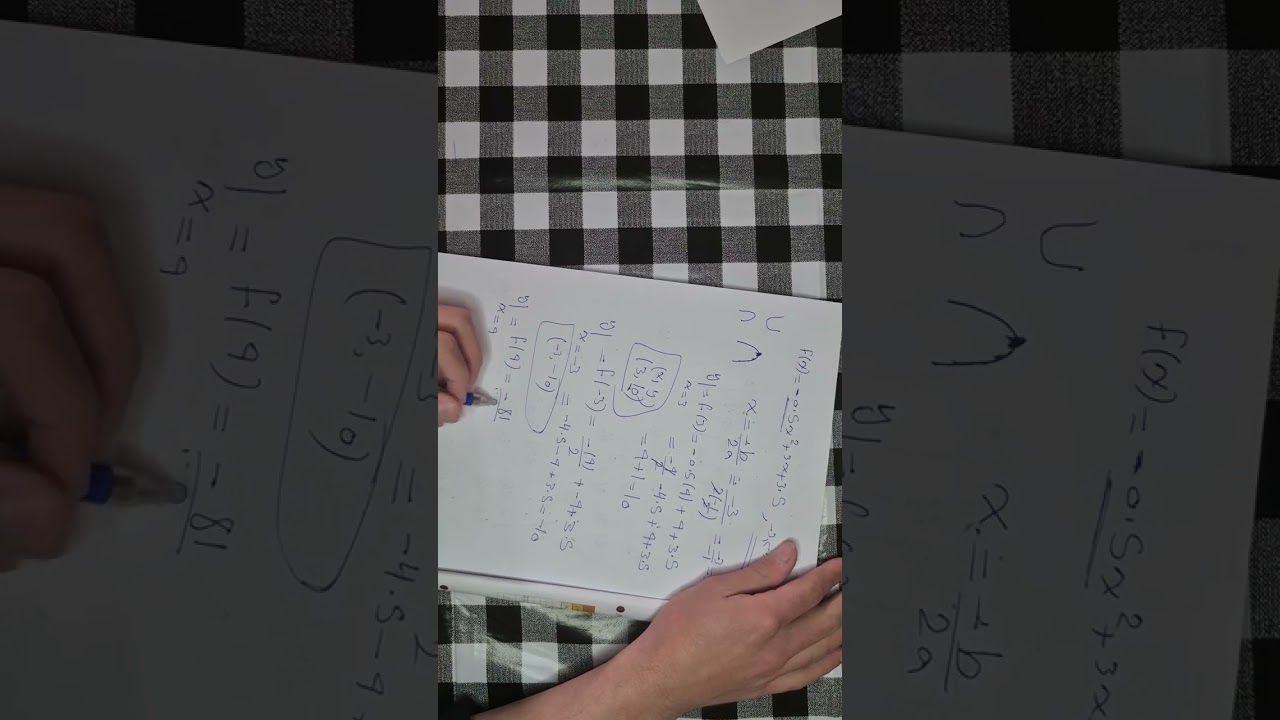 f(x) = -0.5x² + 3x + 3.5, -3
∪
∩
x = -b/2a = -3/2(-1/2) = -3/-1
y| x=3 = f(3) = -0.5(9) + 9 + 3.5
= -9/2 -4.5 + 9 + 3.5
= 9 + 1 = 10
(x, y)
(3, 10)
y| x=-3 = f(-3) = -(9)/2 + -9 + 3.5
= -4.5 - 9 + 3.5 = -10
(-3, -10)
y| x=9 = f(9) = -81